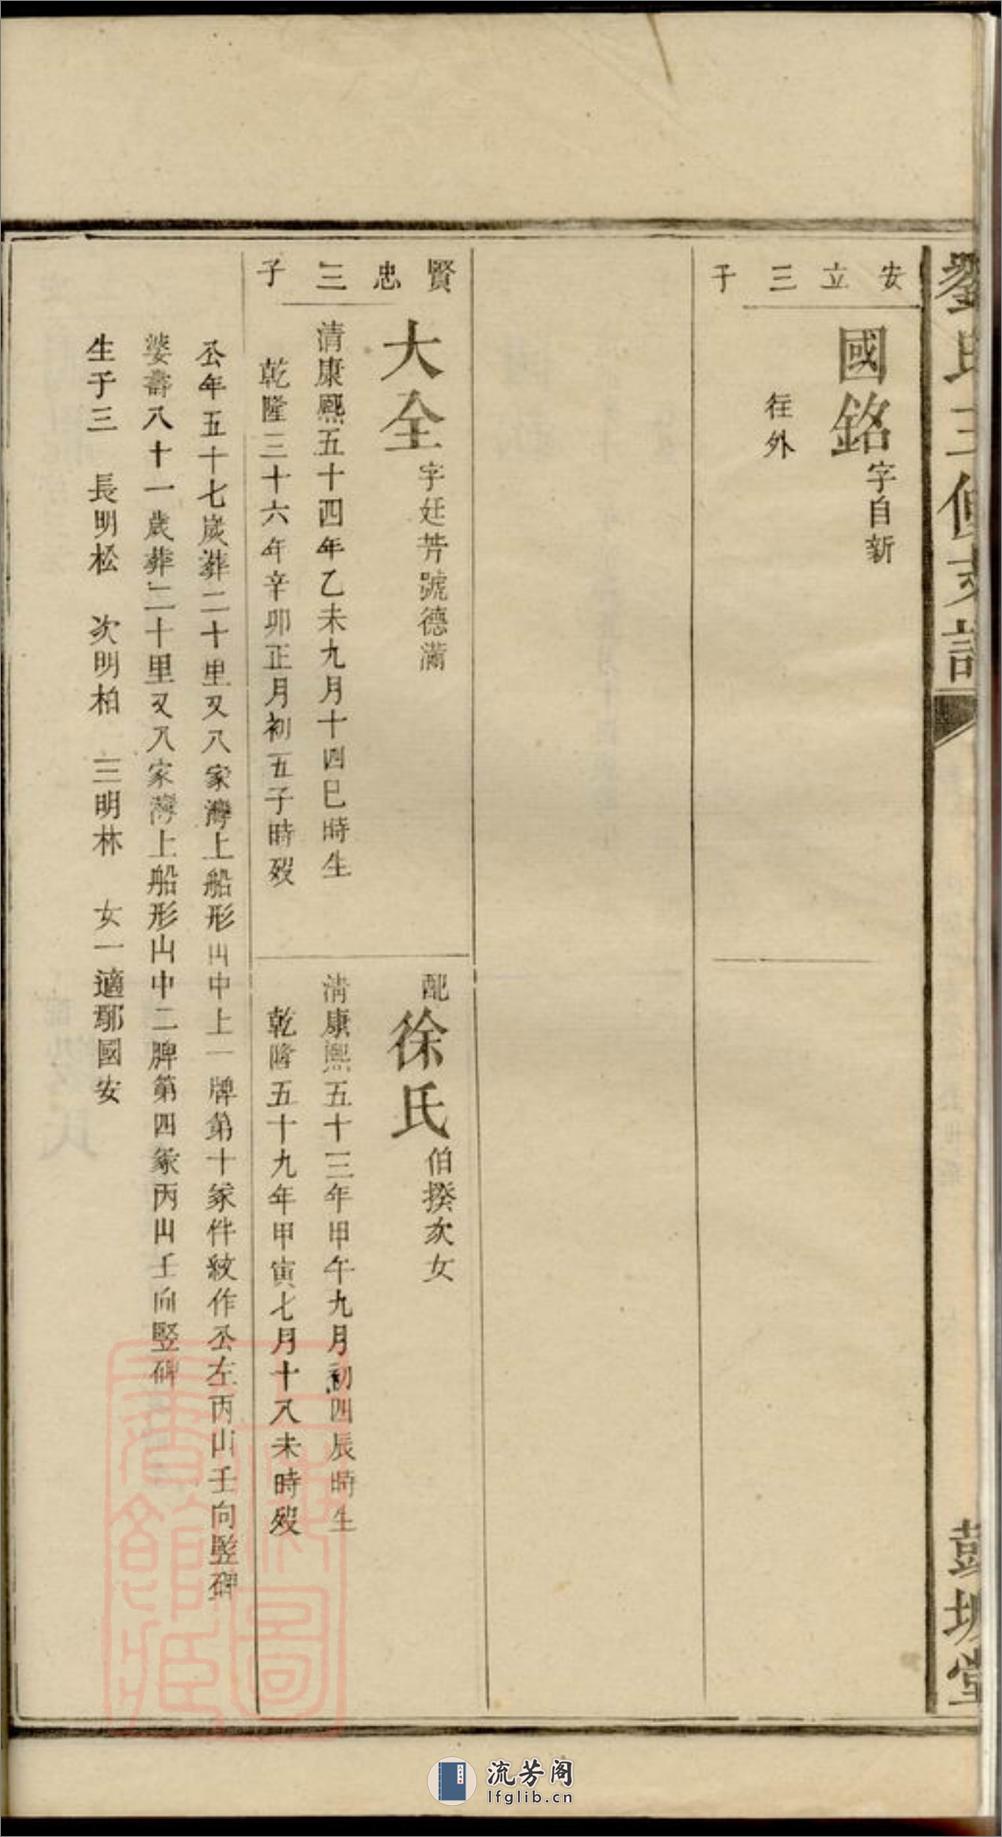 劉氏三修支譜
彭城堂
安立三子
國銘字自新
往外
賢忠三子
大全字廷芳號德瀟
清康熙五十四年乙未九月十四巳時生
乾隆三十六年辛卯正月初五子時歿
配徐氏伯揆次女
清康熙五十三年甲午九月初四辰時生
乾隆五十九年甲寅七月十八未時歿
公年五十七歲葬二十里又八家灣上船形山中上一牌第十冢件紋作公左丙山壬向竪碑
婆壽八十一歲葬二十里又八家灣上船形山中二脾第四冢丙山壬向竪碑
生子三 長明松 次明柏 三明林 女一適鄢國安
上海圖書館藏
流芳阁
lfglib.cn